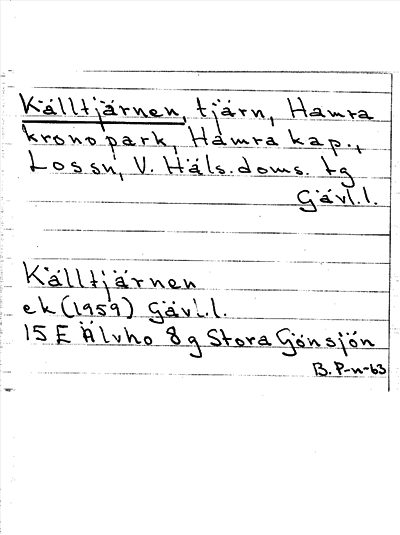 Källtjärnen, tjärn, Hamra
kronopark, Hamra kap.,
Lossn, V. Häls. doms. tg
Gävl.l.
Källtjärnen
ek (1959) Gävl.l.
15 E Älvho 8 g Stora Gönsjön
B. P-n-63